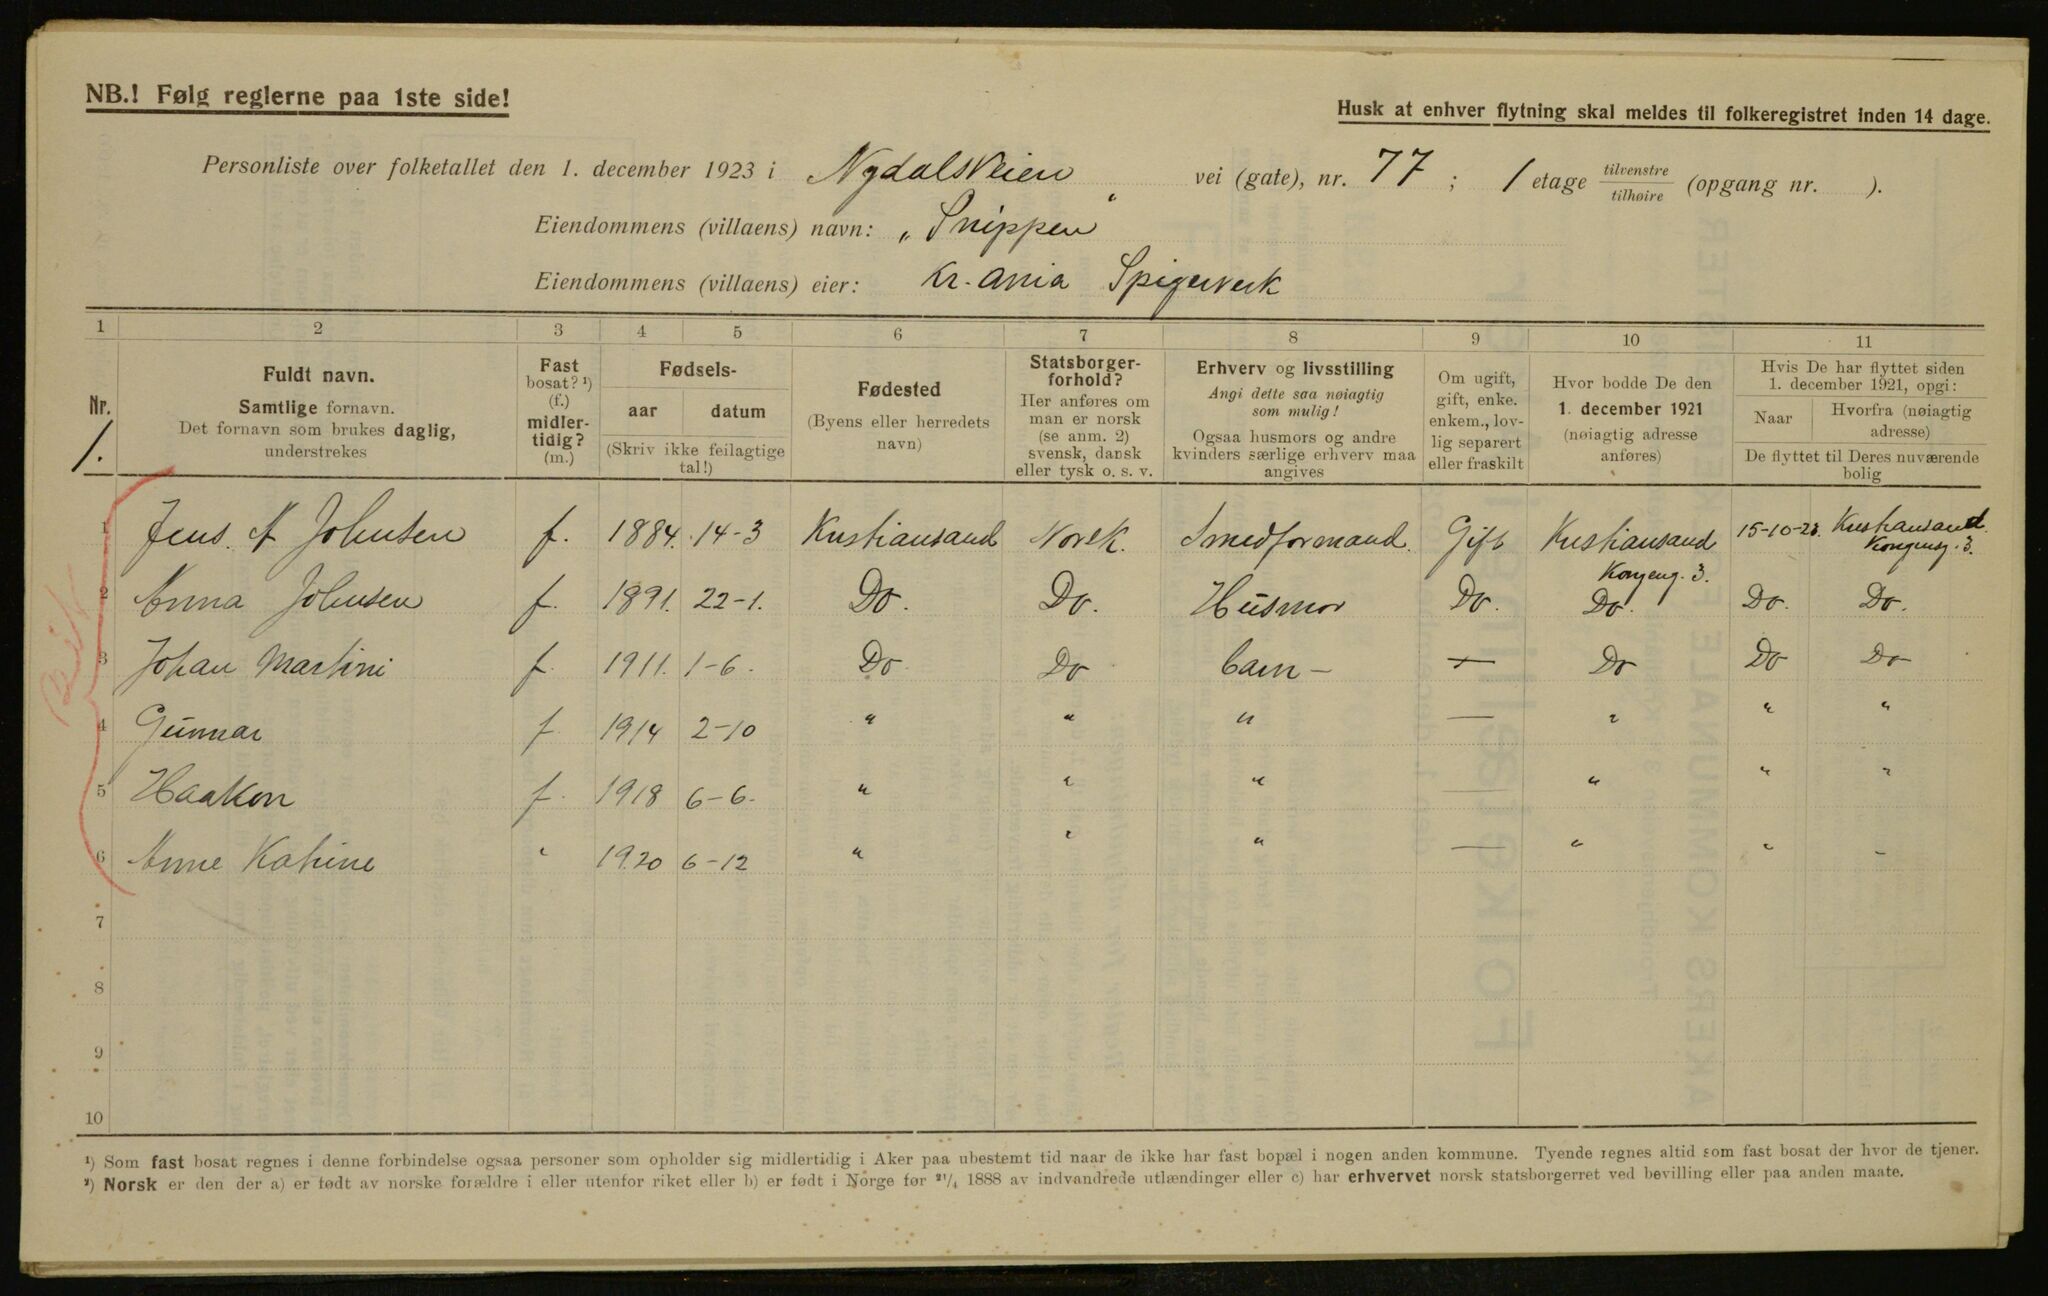 NB.! Følg reglerne paa 1ste side!
Husk at enhver flytning skal meldes til folkeregistret inden 14 dage.
Personliste over folketallet den 1. december 1923 i Nydalsveien vei (gate), nr. 77 ; 1 etage tilvenstre / tilhøire (opgang nr. ).
Eiendommens (villaens) navn: „Snippen"
Eiendommens (villaens) eier: Kr.ania Spigerverk
1 2 3 4 5 6 7 8 9 10 11
Nr. 1.
Fuldt navn.
Samtlige fornavn.
Det fornavn som brukes daglig,
understrekes
Fast
bosat? ¹)
(f.)
midler-
tidig?
(m.)
Fødsels-
aar datum
(Skriv ikke feilagtige
tal!)
Fødested
(Byens eller herredets
navn)
Statsborger-
forhold?
Her anføres om
man er norsk
(se anm. 2)
svensk, dansk
eller tysk o. s. v.
Erhverv og livsstilling
Angi dette saa nøiagtig
som mulig!
Ogsaa husmors og andre
kvinders særlige erhverv maa
angives
Om ugift,
gift, enke.
enkem., lov-
lig separert
eller fraskilt
Hvor bodde De den
1. december 1921
(nøiagtig adresse
anføres)
Hvis De har flyttet siden
1. december 1921, opgi:
Naar Hvorfra (nøiagtig
adresse)
De flyttet til Deres nuværende
bolig
1 Jens. N Johnsen f. 1884. 14-3 Kristiansand Norsk. Smedformand. Gift Kristiansand Kongeng. 3. 15-10-23. Kristiansand Kongensg. 3.
2 Anna Johnsen f. 1891. 22-1. Do. Do. Husmor Do. Do. Do. Do.
3 Johan Martini f. 1911. 1-6. Do. Do barn — — Do Do Do
4 Gunnar f 1914 2-10 " " " — " " "
5 Haakon f. 1918 6-6. " " " — " " "
6 Anne Katrine " 1920 6-12 " " " — " " "
7
8
9
10
¹) Som fast bosat regnes i denne forbindelse ogsaa personer som opholder sig midlertidig i Aker paa ubestemt tid naar de ikke har fast bopæl i nogen anden kommune. Tyende regnes altid som fast bosat der hvor de tjener.
²) Norsk er den der a) er født av norske forældre i eller utenfor riket eller b) er født i Norge før ²¹/₄ 1888 av indvandrede utlændinger eller c) har erhvervet norsk statsborgerret ved bevilling eller paa anden maate.